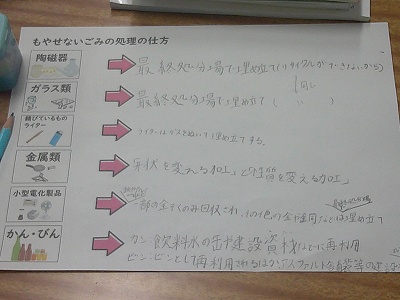 もやせないごみの処理の仕方
陶磁器
最終処分場で埋め立て(リサイクルができないから)
同じ
ガラス類
最終処分場で埋め立て( 〃 )
錆びているもの
ライター
ライターはガスをぬいて埋め立てする。
金属類
形状を変える加工と性質を変える加工
小型電化製品
一部の金ぞくのみ回収され、その他の金や
などは埋め立て
かん・びん
カン:飲料水の缶や建設資材などに再利用
ビン:ビンとして再利用されるほか、アスファルト舗装等の建設